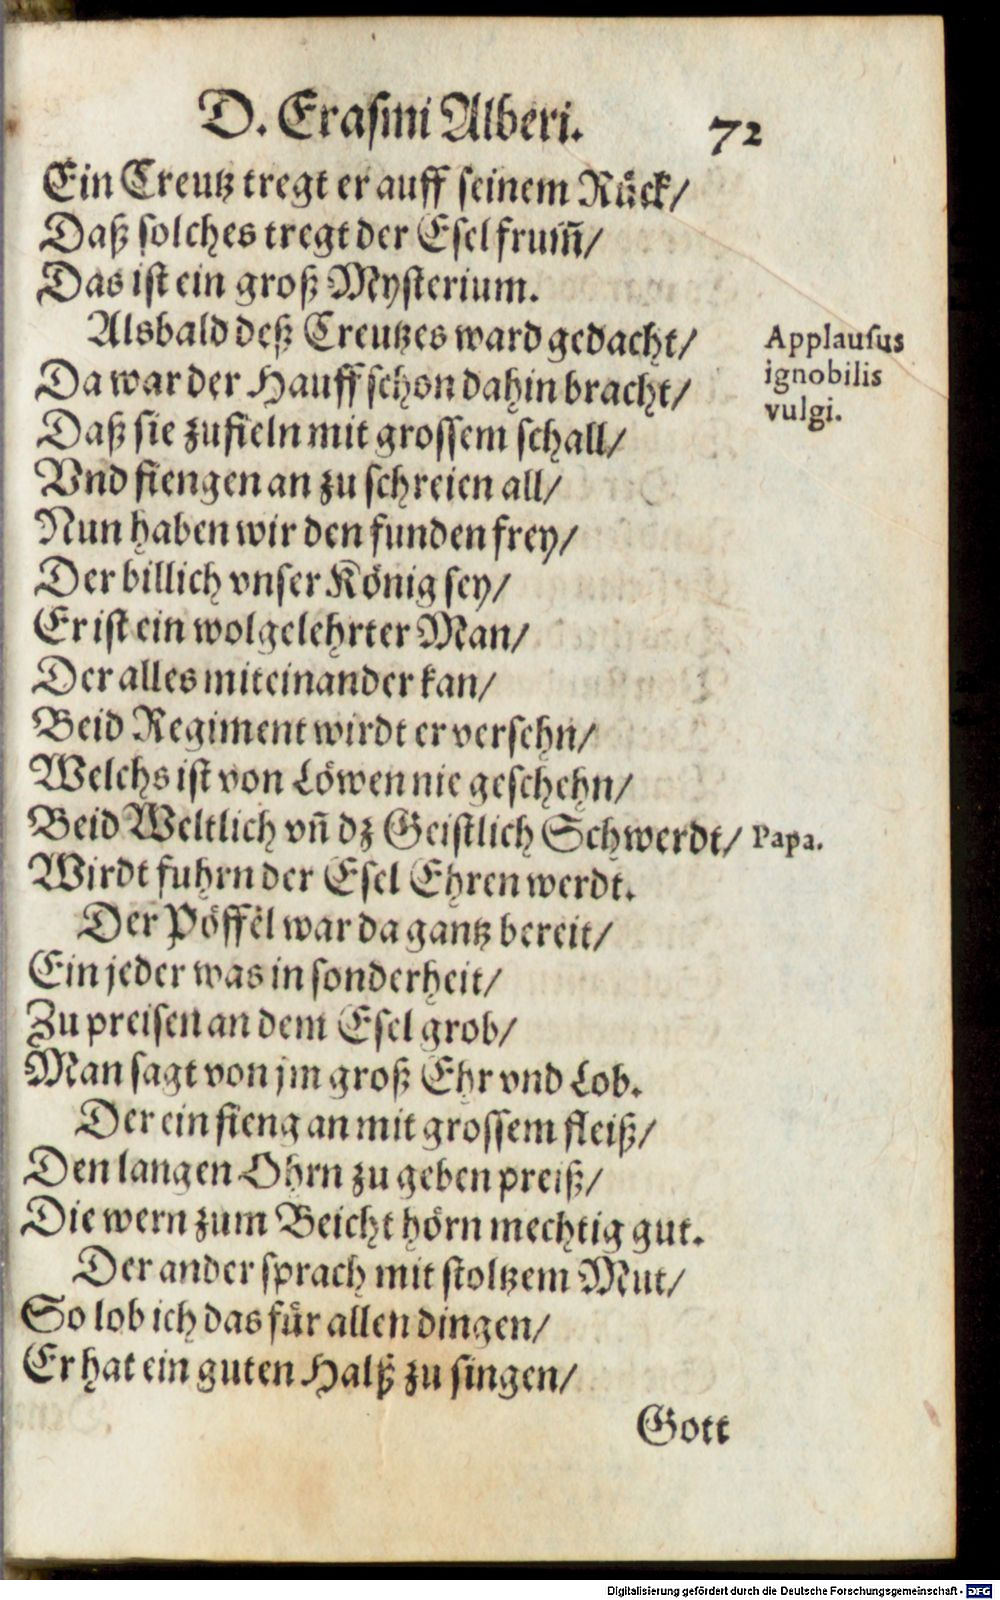 D. Erasmi Alberi. 72
Ein Creutz tregt er auff seinem Rück/
Daß solches tregt der Esel frum̃/
Das ist ein groß Mysterium.
Alsbald deß Creutzes ward gedacht/
Applausus
Da war der Hauff schon dahin bracht/
ignobilis
Daß sie zufieln mit grossem schall/
vulgi.
Vnd fiengen an zu schreien all/
Nun haben wir den funden frey/
Der billich vnser König sey/
Er ist ein wolgelehrter Man/
Der alles miteinander kan/
Beid Regiment wirdt er versehn/
Welchs ist von Löwen nie geschehn/
Beid Weltlich vñ dz Geistlich Schwerdt/ Papa.
Wirdt fuhrn der Esel Ehren werdt.
Der Pöffel war da gantz bereit/
Ein jeder was in sonderheit/
Zu preisen an dem Esel grob/
Man sagt von jm groß Ehr vnd Lob.
Der ein fieng an mit grossem fleiß/
Den langen Ohrn zu geben preiß/
Die wern zum Beicht hörn mechtig gut.
Der ander sprach mit stoltzem Mut/
So lob ich das für allen dingen/
Er hat ein guten Halß zu singen/
Gott
Digitalisierung gefördert durch die Deutsche Forschungsgemeinschaft - DFG